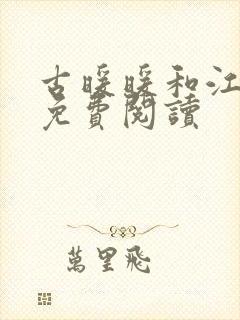 古暖暖和江
免費閱讀
萬里飛